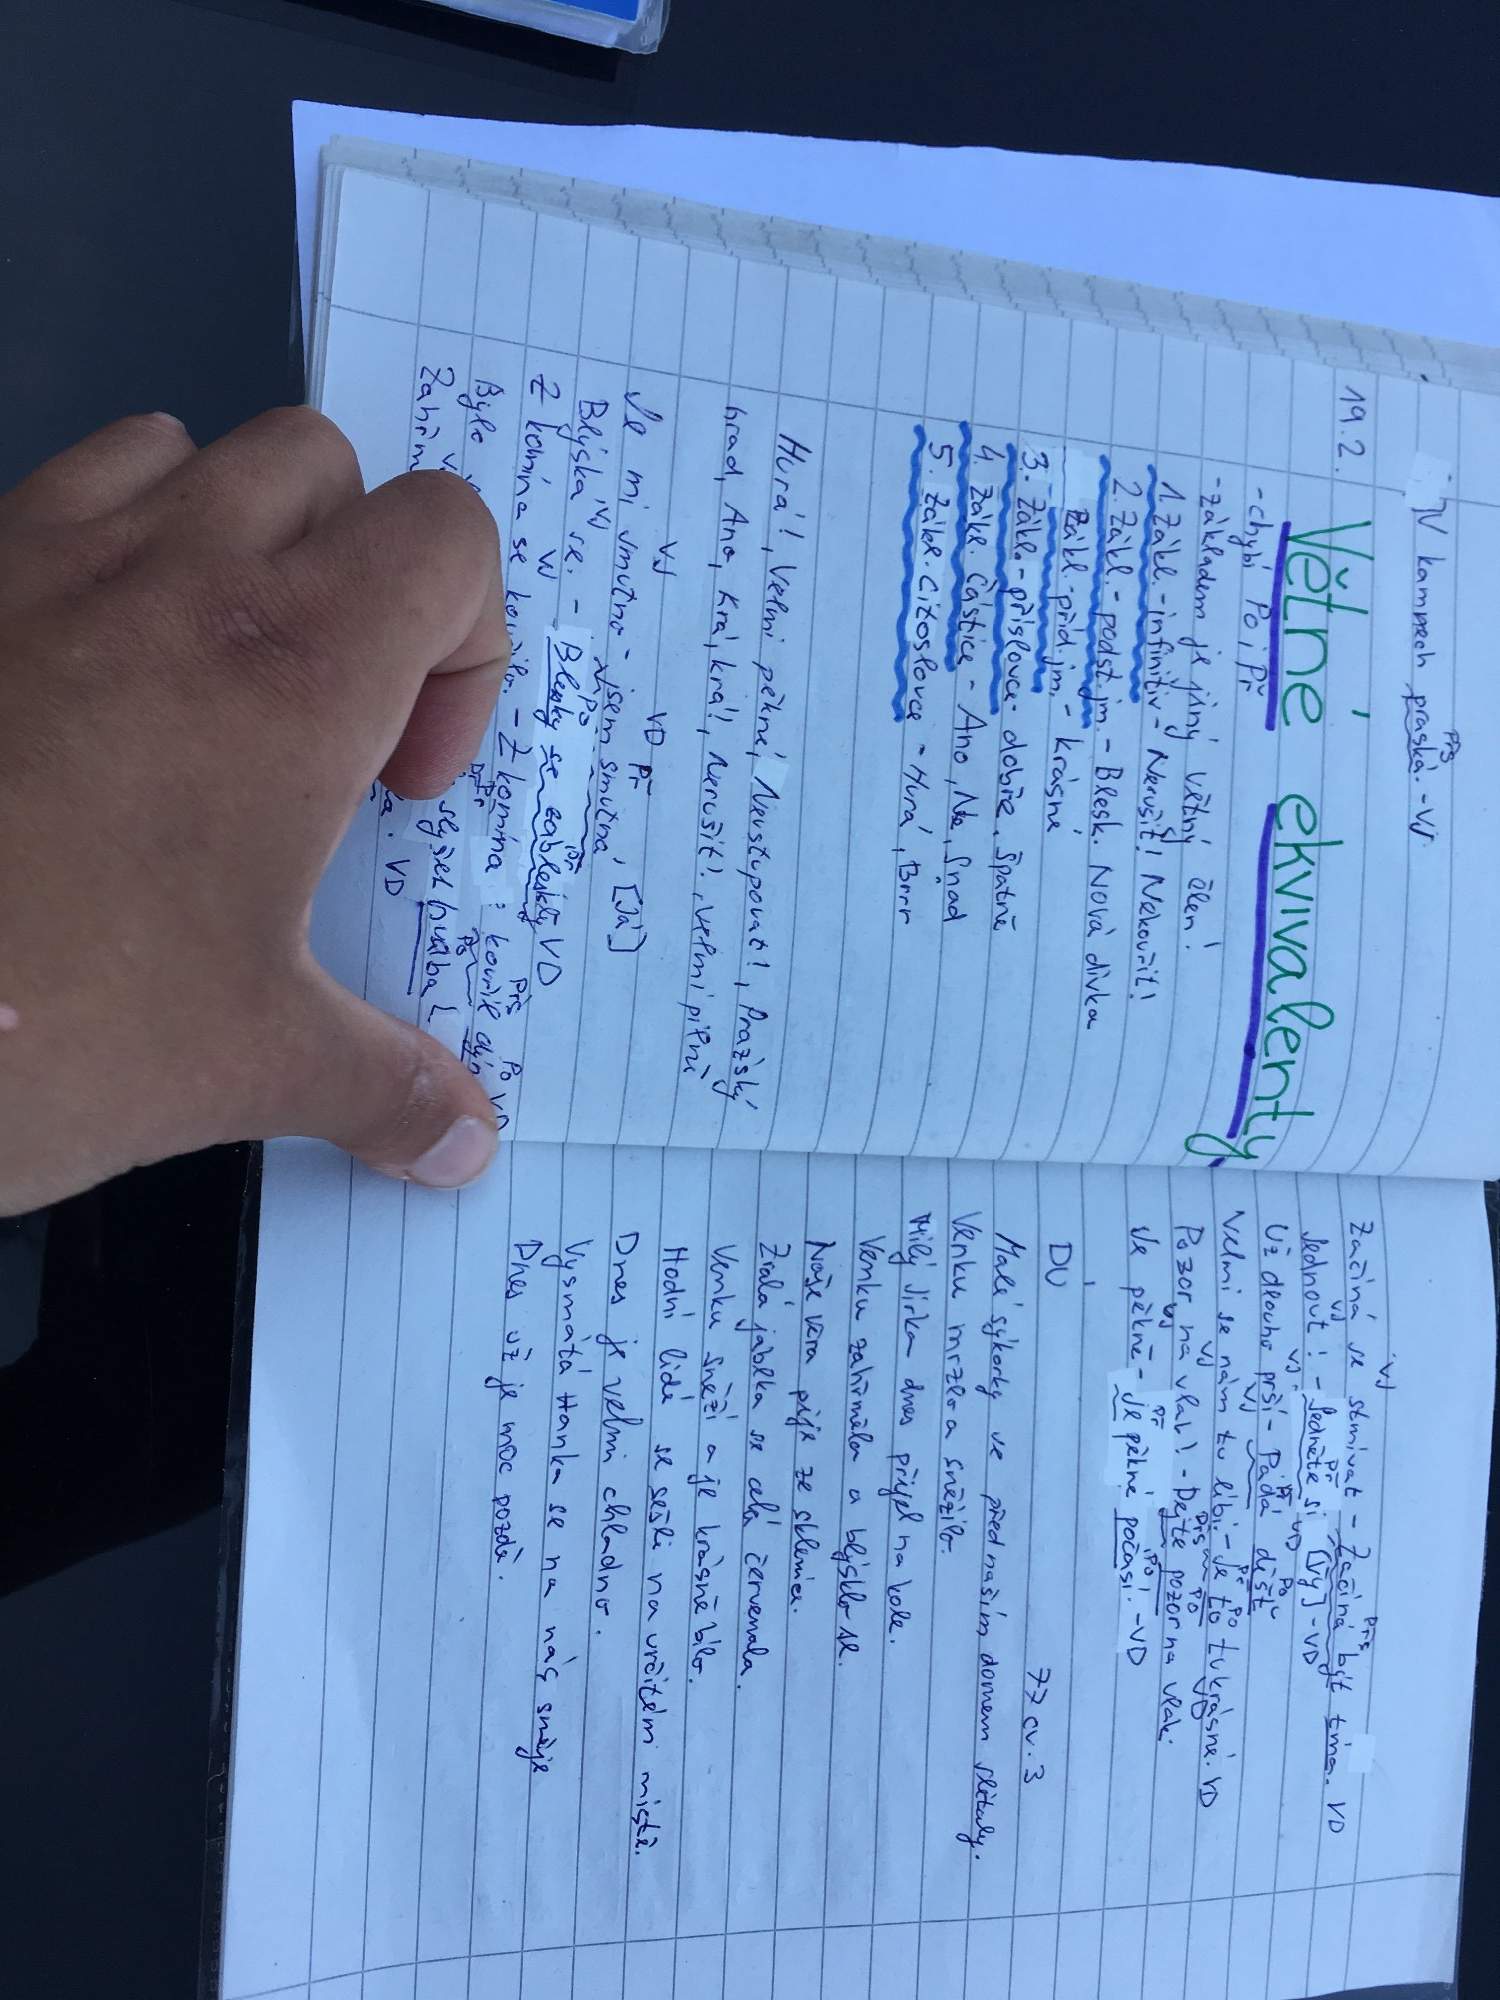 V kamnech praská. - VJ
Přs
19.2.
Větné ekvivalenty
- chybí Po, Př
- základem je jiný větný člen!
1. Zákl. - infinitiv - Nerušit! Nekouřit!
2. Zákl. - podst. jm. - Blesk. Nová dívka
Zákl. - příd. jm. - krásné
3. Zákl. - příslovce - dobře, špatně
4. Zákl. částice - Ano, Ne, Snad
5. Zákl. citoslovce - Hurá, Brrr
Hurá!, Velmi pěkné, Neustupovat!, Pražský
hrad, Ano, Krá, krá!, Nerušit!, Velmi pilní
VJ VD Př
Je mi smutno - jsem smutná, [Já]
VJ Po Př
Blýská se. - Blesky se zableskly VD
VJ Přs Po
Z komína se kouřilo. - Z komína kouřil dým VD
Bylo slyšet hudba
Zahřm VD
VJ Přs
Začíná se stmívat - Začíná být tma. VD
VJ Př
Jednout! - Jedněte si [Vy] - VD
VJ Př VD Po
Už dlouho prší - Padá déšť
VJ Přs Po
Velmi se nám tu líbí. - Je to tu krásné. VD
VJ Př Po VD
Pozor na vlak! - Dejte pozor na vlak.
VJ Př Po
Je pěkně - Je pěkné počasí. - VD
DÚ 77 cv. 3
Malé sýkorky ve před naším domem slétaly.
Venku mrzlo a sněžilo.
Milý Jirka dnes přijel na kole.
Venku zahřmělo a blýsklo se.
Naše Věra pije ze sklenice.
Zralá jablka se celá červenala.
Venku sněží a je krásně bílo.
Hodní lidé se sešli na určitém místě.
Dnes je velmi chladno.
Vysmátá Hanka se na nás směje
Dnes už je moc pozdě.